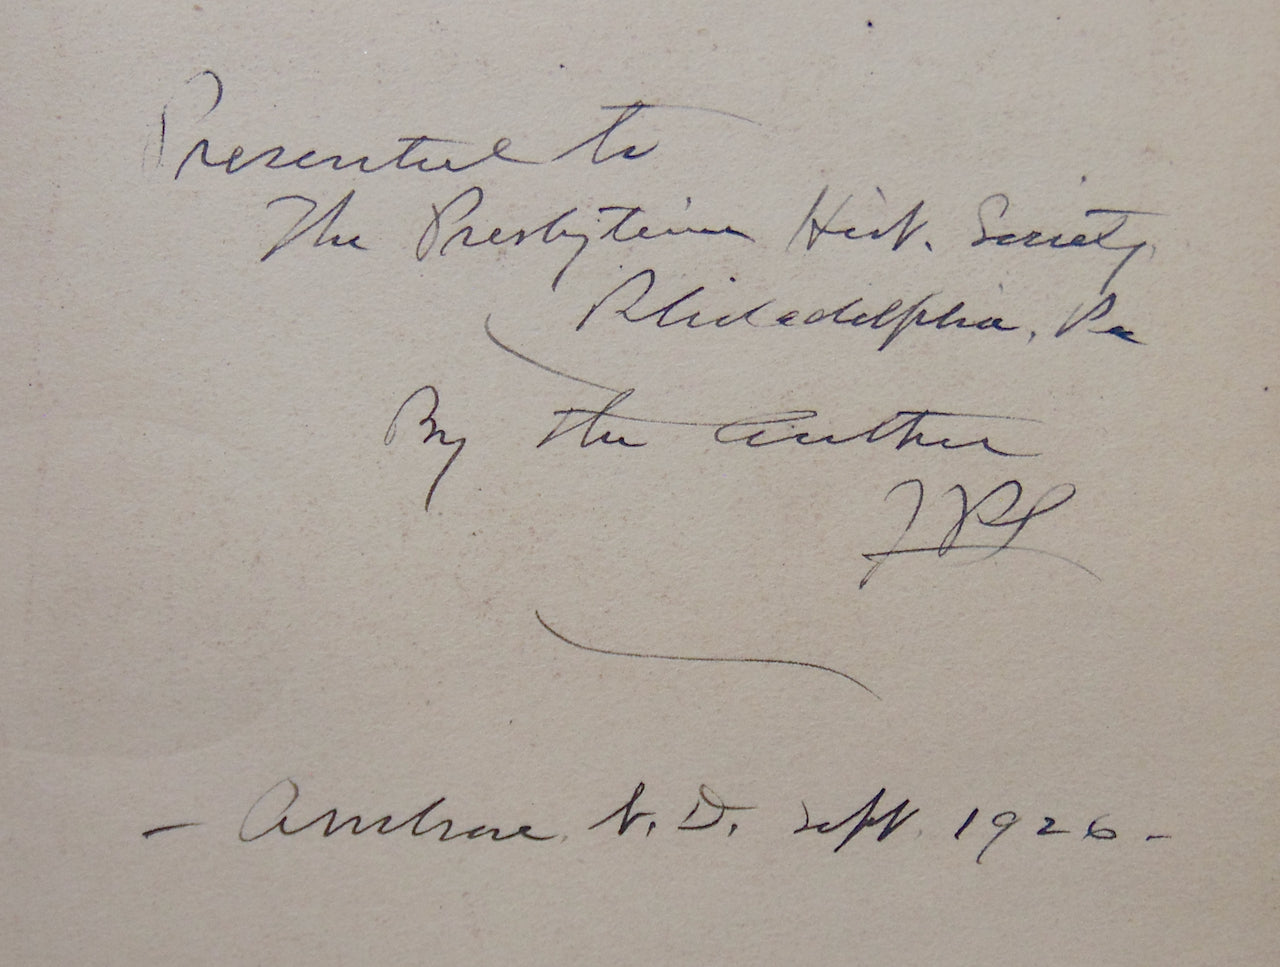 Presented to
The Presbyterian Hist. Society
Philadelphia, Pa
By the Author
- Ambrose, N.D. Sept. 1926 -